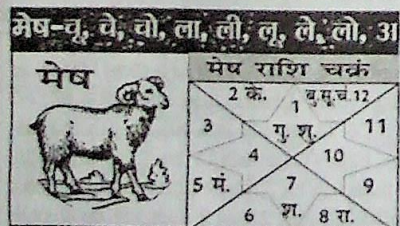 मेष-चू, चे, चो, ला, ली, लू, ले, लो, अ
मेष
मेष राशि चक्रं
2 के. 1 बु.सू.चं.12
3 गु. शु. 11
4 10
5 मं. 7 9
6 श. 8 रा.